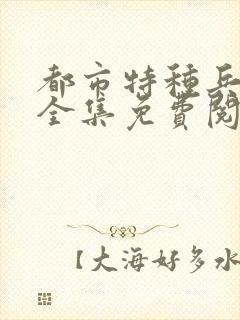 都市特种兵
全集免費閱
【大海好多水